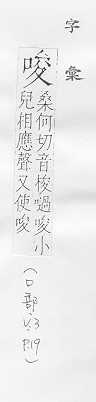 字彙
唆
桑何切音梭過唆小
兒相應聲又使唆
(口部,V.3
P.19)